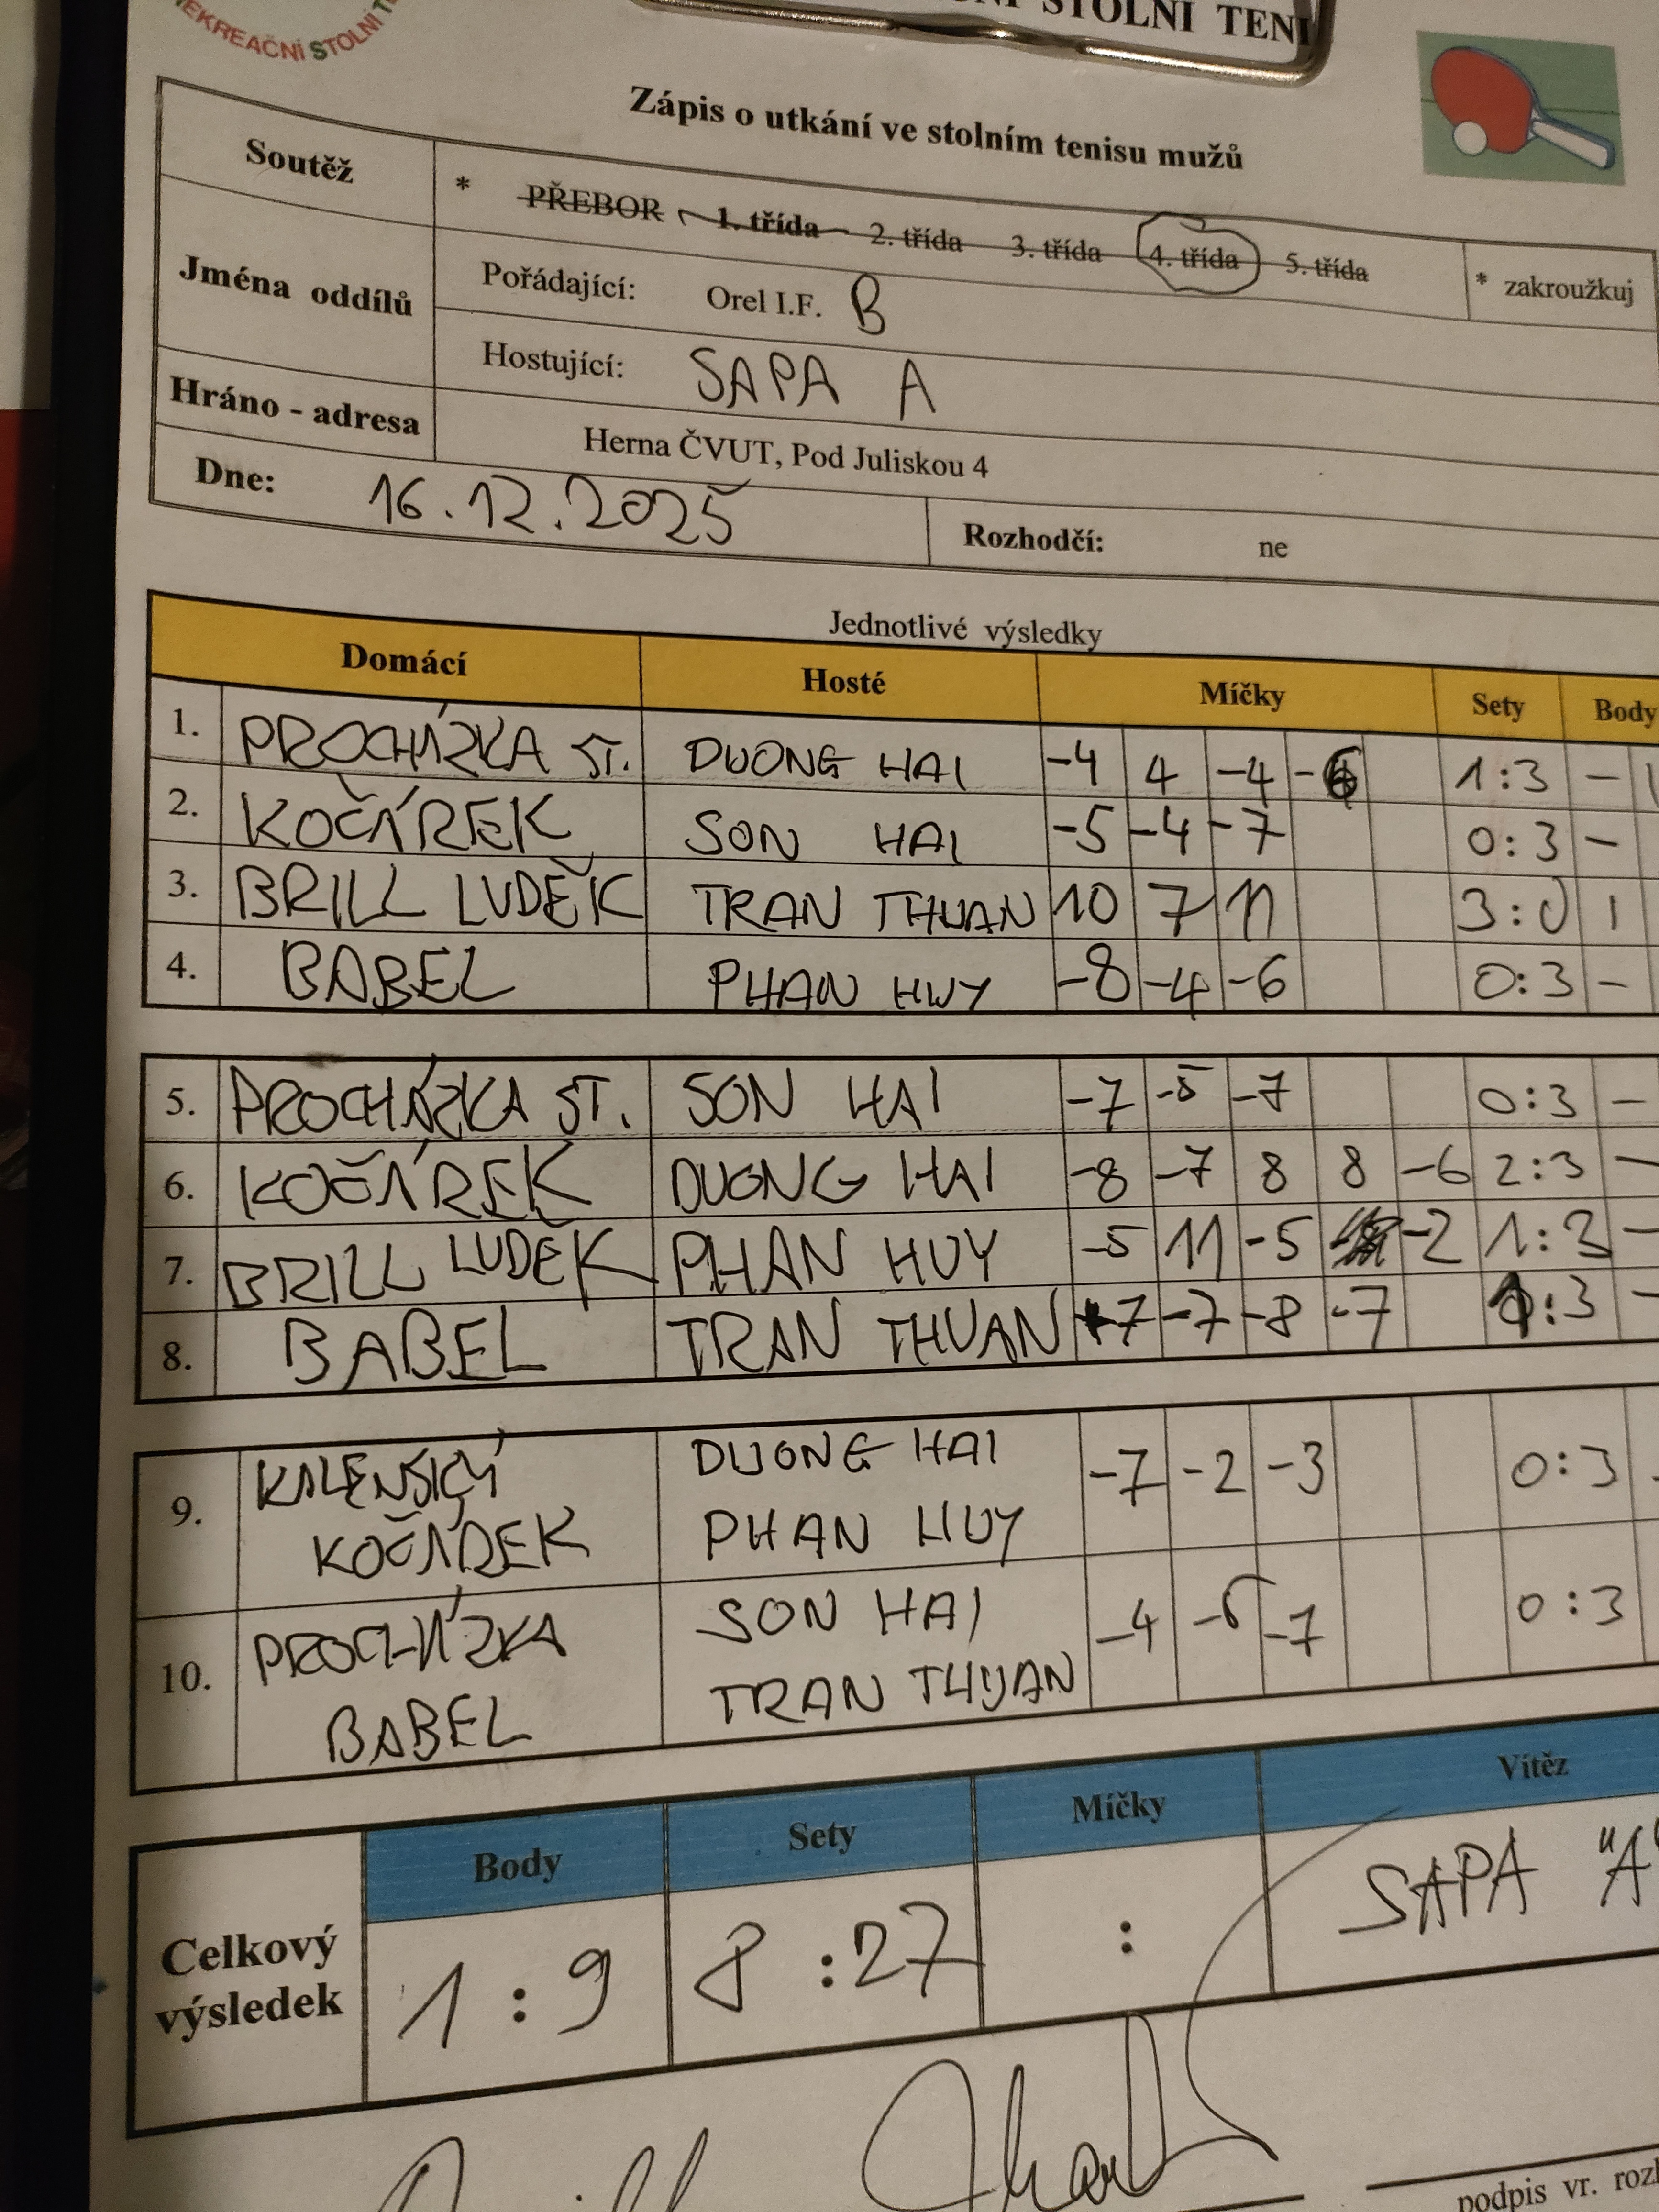 STOLNÍ TENI
REKREAČNÍ STOLNÍ
Zápis o utkání ve stolním tenisu mužů
Soutěž * PŘEBOR 1. třída 2. třída 3. třída 4. třída 5. třída * zakroužkuj
Jména oddílů Pořádající: Orel I.F. B
Hostující: SAPA A
Hráno - adresa Herna ČVUT, Pod Juliskou 4
Dne: 16.12.2025 Rozhodčí: ne
Jednotlivé výsledky
Domácí Hosté Míčky Sety Body
1. PROCHÁZKA ST. DUONG HAI -4 4 -4 -6 1:3 -
2. KOČÁREK SON HAI -5 -4 -7 0:3 -
3. BRILL LUDĚK TRAN THUAN 10 7 11 3:0 1
4. BABEL PHAN HUY -8 -4 -6 0:3 -
5. PROCHÁZKA ST. SON HAI -7 -5 -7 0:3 -
6. KOČÁREK DUONG HAI -8 -7 8 8 -6 2:3 -
7. BRILL LUDĚK PHAN HUY -5 11 -5 -2 1:3 -
8. BABEL TRAN THUAN +7 -7 -8 -7 1:3 -
9. DUONG HAI -7 -2 -3 0:3
KOČÁREK PHAN HUY
10. PROCHÁZKA SON HAI -4 -7 0:3
BABEL TRAN THUAN
Body Sety Míčky Vítěz
Celkový výsledek 1:9 8:27 : SAPA "A"
podpis vr. rozh